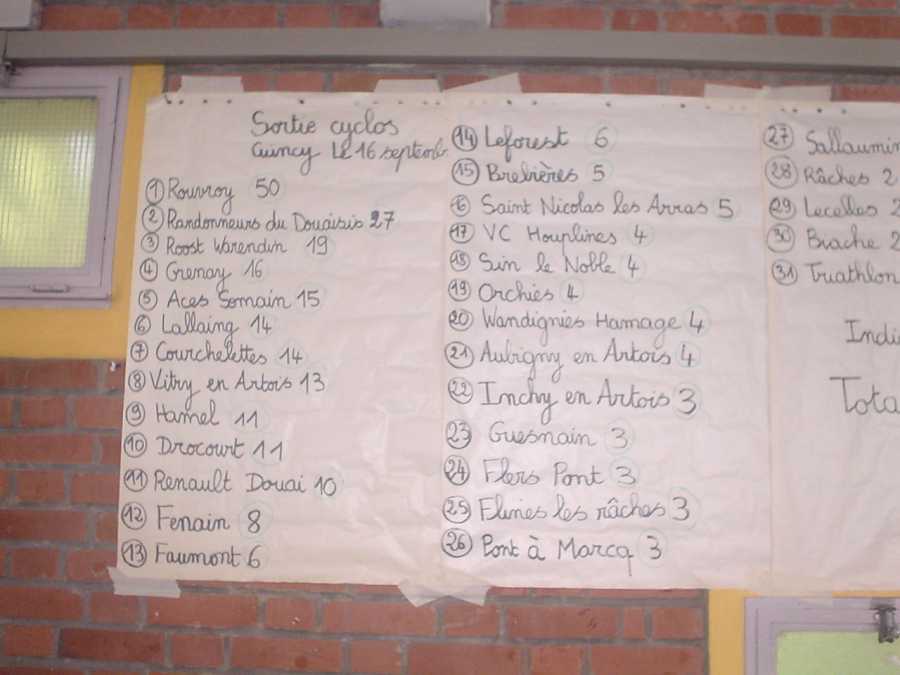 Sortie cyclos
Cuincy Le 16 septemb
1 Rouvroy 50
2 Randonneurs du Douaisis 27
3 Roost Warendin 19
4 Grenay 16
5 Aces Somain 15
6 Lallaing 14
7 Courchelettes 14
8 Vitry en Artois 13
9 Hamel 11
10 Drocourt 11
11 Renault Douai 10
12 Fenain 8
13 Faumont 6
14 Leforest 6
15 Brebières 5
16 Saint Nicolas les Arras 5
17 VC Houplines 4
18 Sin le Noble 4
19 Orchies 4
20 Wandignies Hamage 4
21 Aubigny en Artois 4
22 Inchy en Artois 3
23 Guesnain 3
24 Flers Pont 3
25 Flines les râches 3
26 Pont à Marcq 3
27 Sallaumin
28 Râches 2
29 Lecelles 2
30 Biache 2
31 Triathlon
Indi
Tota